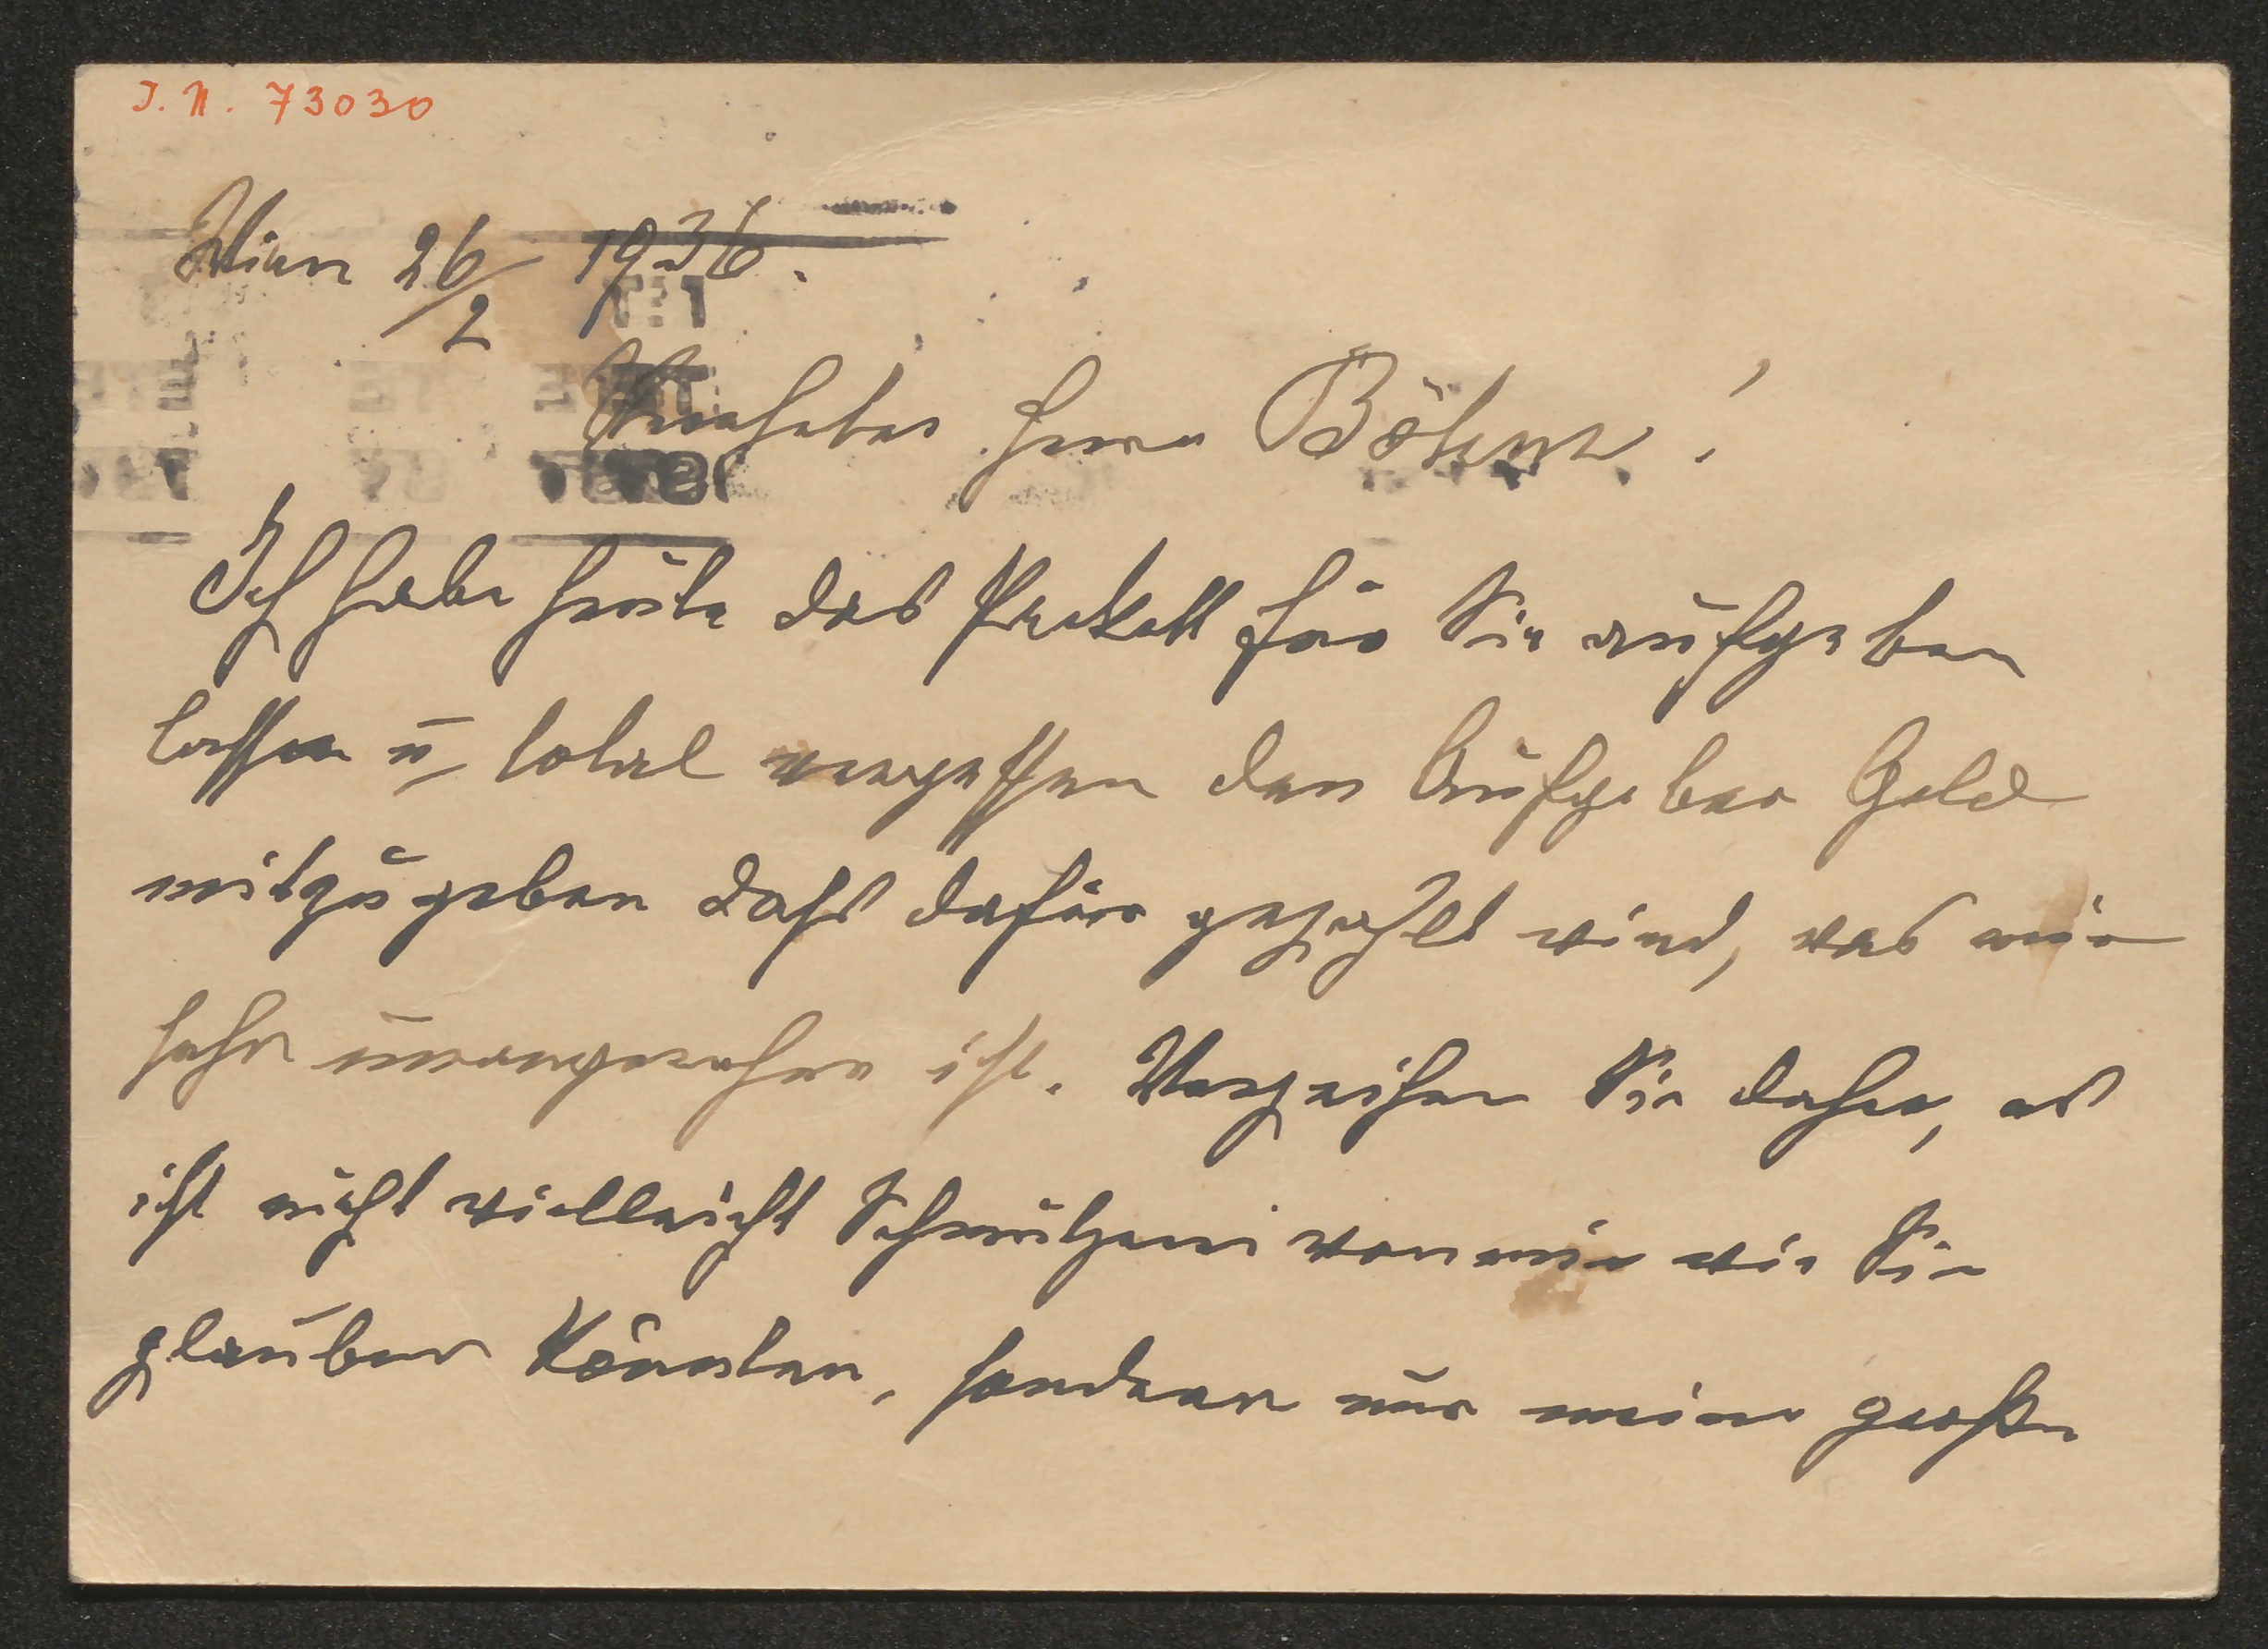 J. N. 73030
Wien 26/2 1936.
Verehrter Herr Böhm!
Ich habe heute das Packett für Sie aufgeben
lassen u total vergessen den Aufgeber Geld
mitzugeben dafs dafür gezahlt wird, was mir
sehr unangenehm ist. Verzeihen Sie daher, es
ist nicht vielleicht Schmutzerei von mir wie Sie
glauben könnten, sondern nur meine große